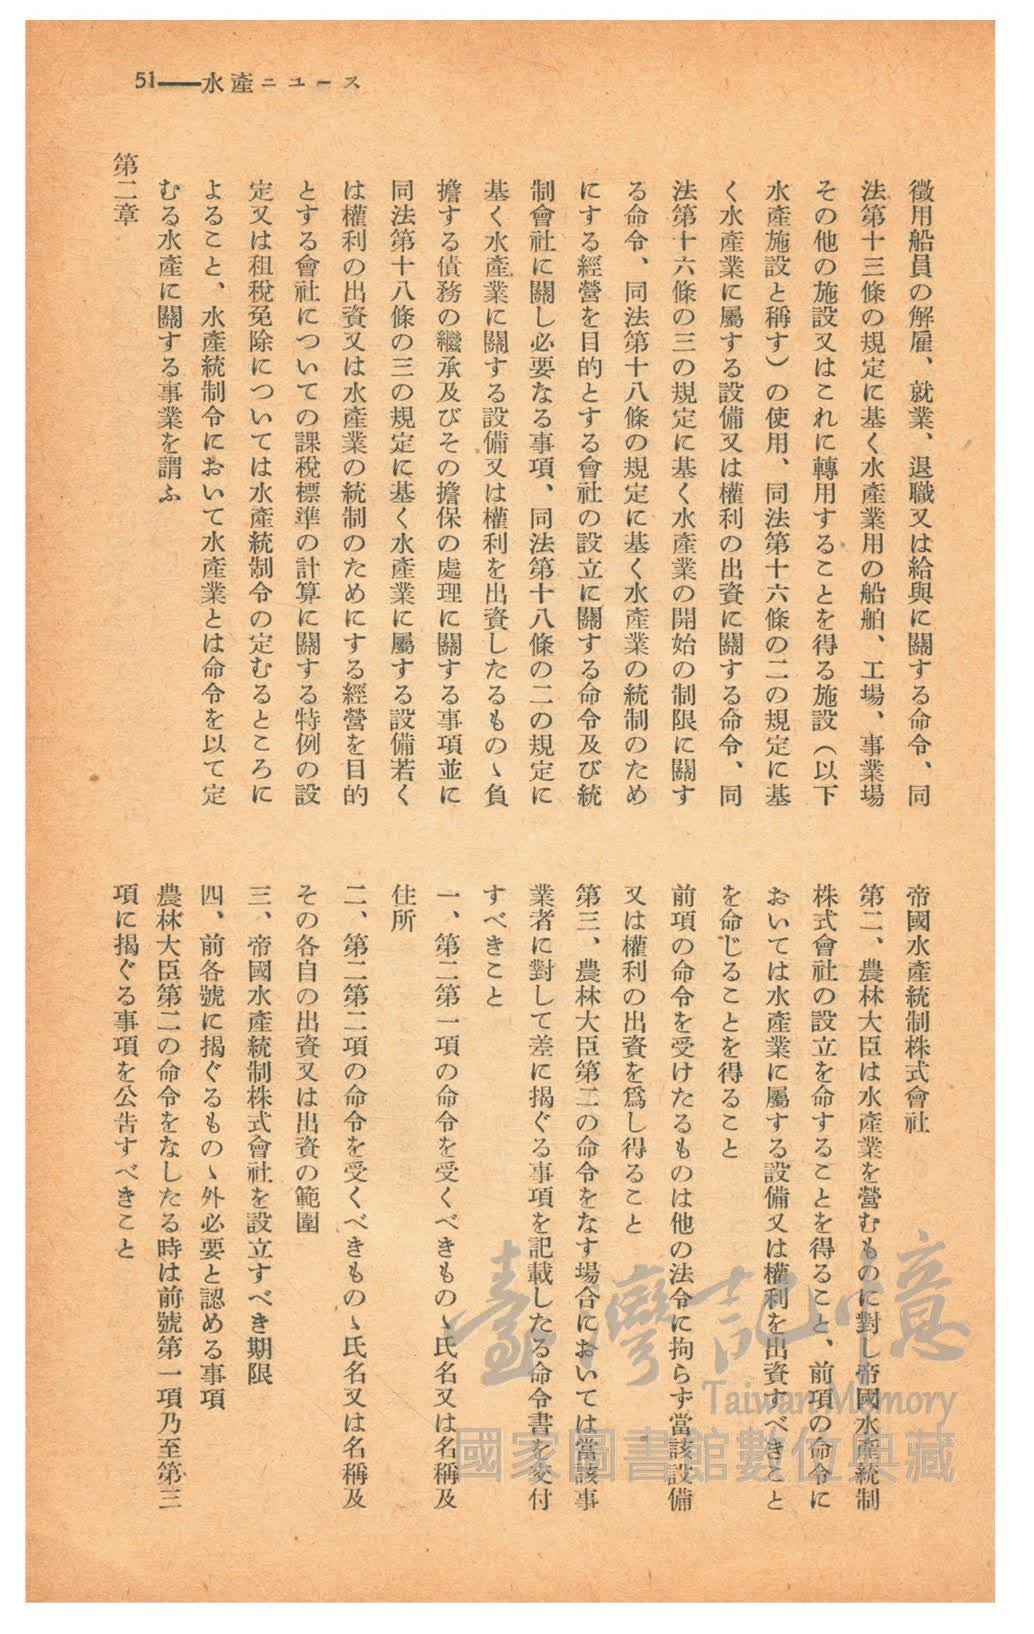 51——水產ニュース
徵用船員の解雇、就業、退職又は給與に關する命令、同
法第十三條の規定に基く水產業用の船舶、工場、事業場
その他の施設又はこれに轉用することを得る施設（以下
水產施設と稱す）の使用、同法第十六條の二の規定に基
く水產業に屬する設備又は權利の出資に關する命令、同
法第十六條の三の規定に基く水產業の開始の制限に關す
る命令、同法第十八條の規定に基く水產業の統制のため
にする經營を目的とする會社の設立に關する命令及び統
制會社に關し必要なる事項、同法第十八條の二の規定に
基く水產業に關する設備又は權利を出資したるものゝ負
擔する債務の繼承及びその擔保の處理に關する事項並に
同法第十八條の三の規定に基く水產業に屬する設備若く
は權利の出資又は水產業の統制のためにする經營を目的
とする會社についての課稅標準の計算に關する特例の設
定又は租稅免除については水產統制令の定むるところに
よること、水產統制令において水產業とは命令を以て定
むる水產に關する事業を謂ふ
第二章
帝國水產統制株式會社
第二、農林大臣は水產業を營むものに對し帝國水產統制
株式會社の設立を命することを得ること、前項の命令に
おいては水產業に屬する設備又は權利を出資すべきこと
を命じることを得ること
前項の命令を受けたるものは他の法令に拘らず當該設備
又は權利の出資を爲し得ること
第三、農林大臣第二の命令をなす場合においては當該事
業者に對して差に揭ぐる事項を記載したる命令書を交付
すべきこと
一、第二第一項の命令を受くべきものゝ氏名又は名稱及
住所
二、第二第二項の命令を受くべきものゝ氏名又は名稱及
その各自の出資又は出資の範圍
三、帝國水產統制株式會社を設立すべき期限
四、前各號に揭ぐるものゝ外必要と認める事項
農林大臣第二の命令をなしたる時は前號第一項乃至第三
項に揭ぐる事項を公告すべきこと
臺灣記憶
Taiwan Memory
國家圖書館數位典藏